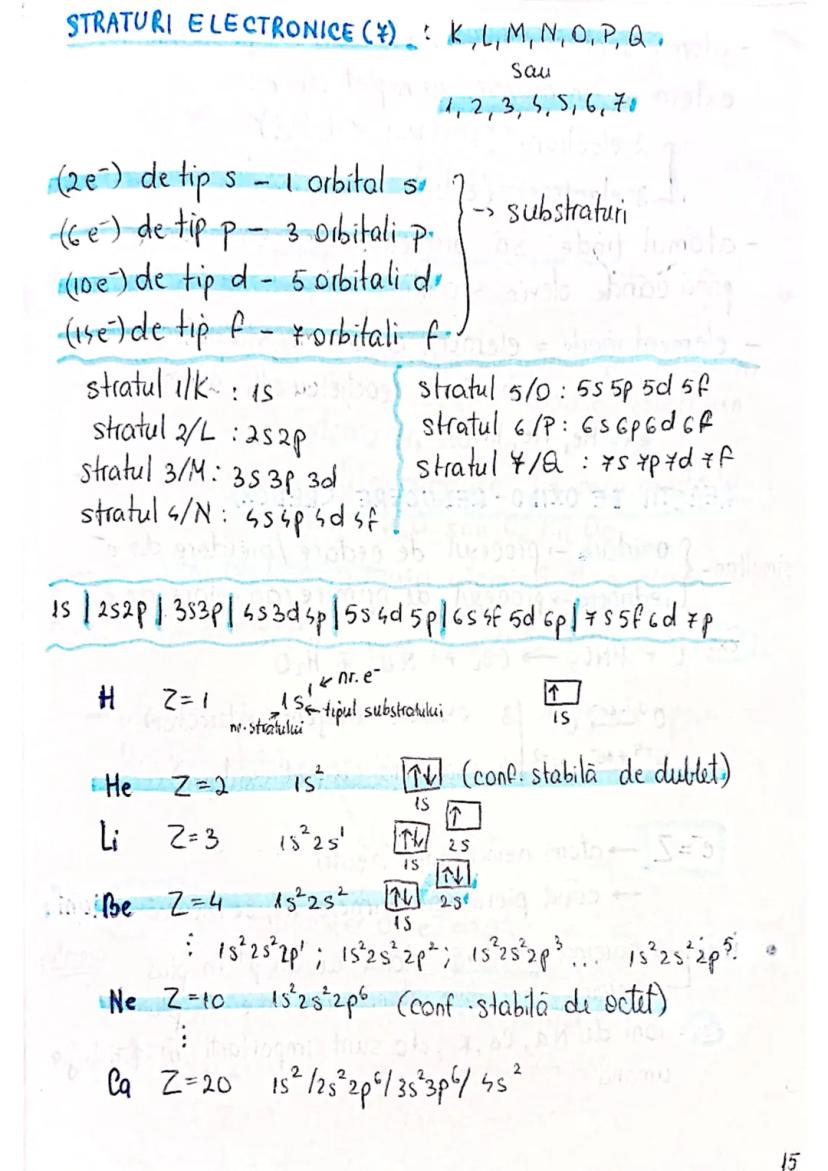 STRATURI ELECTRONICE (7) : K, L, M, N, O, P, Q.
sau
1, 2, 3, 4, 5, 6, 7.
(2e⁻) de tip s – 1 orbital s
(6e⁻) de tip p – 3 orbitali p.
(10e⁻) de tip d – 5 orbitali d
(14e⁻) de tip f – 7 orbitali f
-> substraturi
stratul 1/K : 1s
stratul 2/L : 2s2p
stratul 3/M : 3s 3p 3d
stratul 4/N : 4s4p 4d 4f
stratul 5/O : 5s 5p 5d 5f
stratul 6/P : 6s 6p 6d 6f
stratul 7/Q : 7s 7p 7d 7f
1s | 2s2p | 3s3p | 4s3d4p | 5s 4d 5p | 6s 4f 5d 6p | 7s 5f 6d 7p
H Z=1 1s¹ ← nr. e⁻ ↑
nr. stratului ← tipul substratului 1s
He Z=2 1s² ↑↓ (conf. stabilă de dublet)
1s
Li Z=3 1s²2s¹ ↑↓ ↑
1s 2s
Be Z=4 1s²2s² ↑↓ ↑↓
1s 2s
⋮ 1s²2s²2p¹ ; 1s²2s²2p² ; 1s²2s²2p³ ... 1s²2s²2p⁵
Ne Z=10 1s²2s²2p⁶ (conf. stabilă de octet)
⋮
Ca Z=20 1s² / 2s²2p⁶ / 3s²3p⁶ / 4s²
15